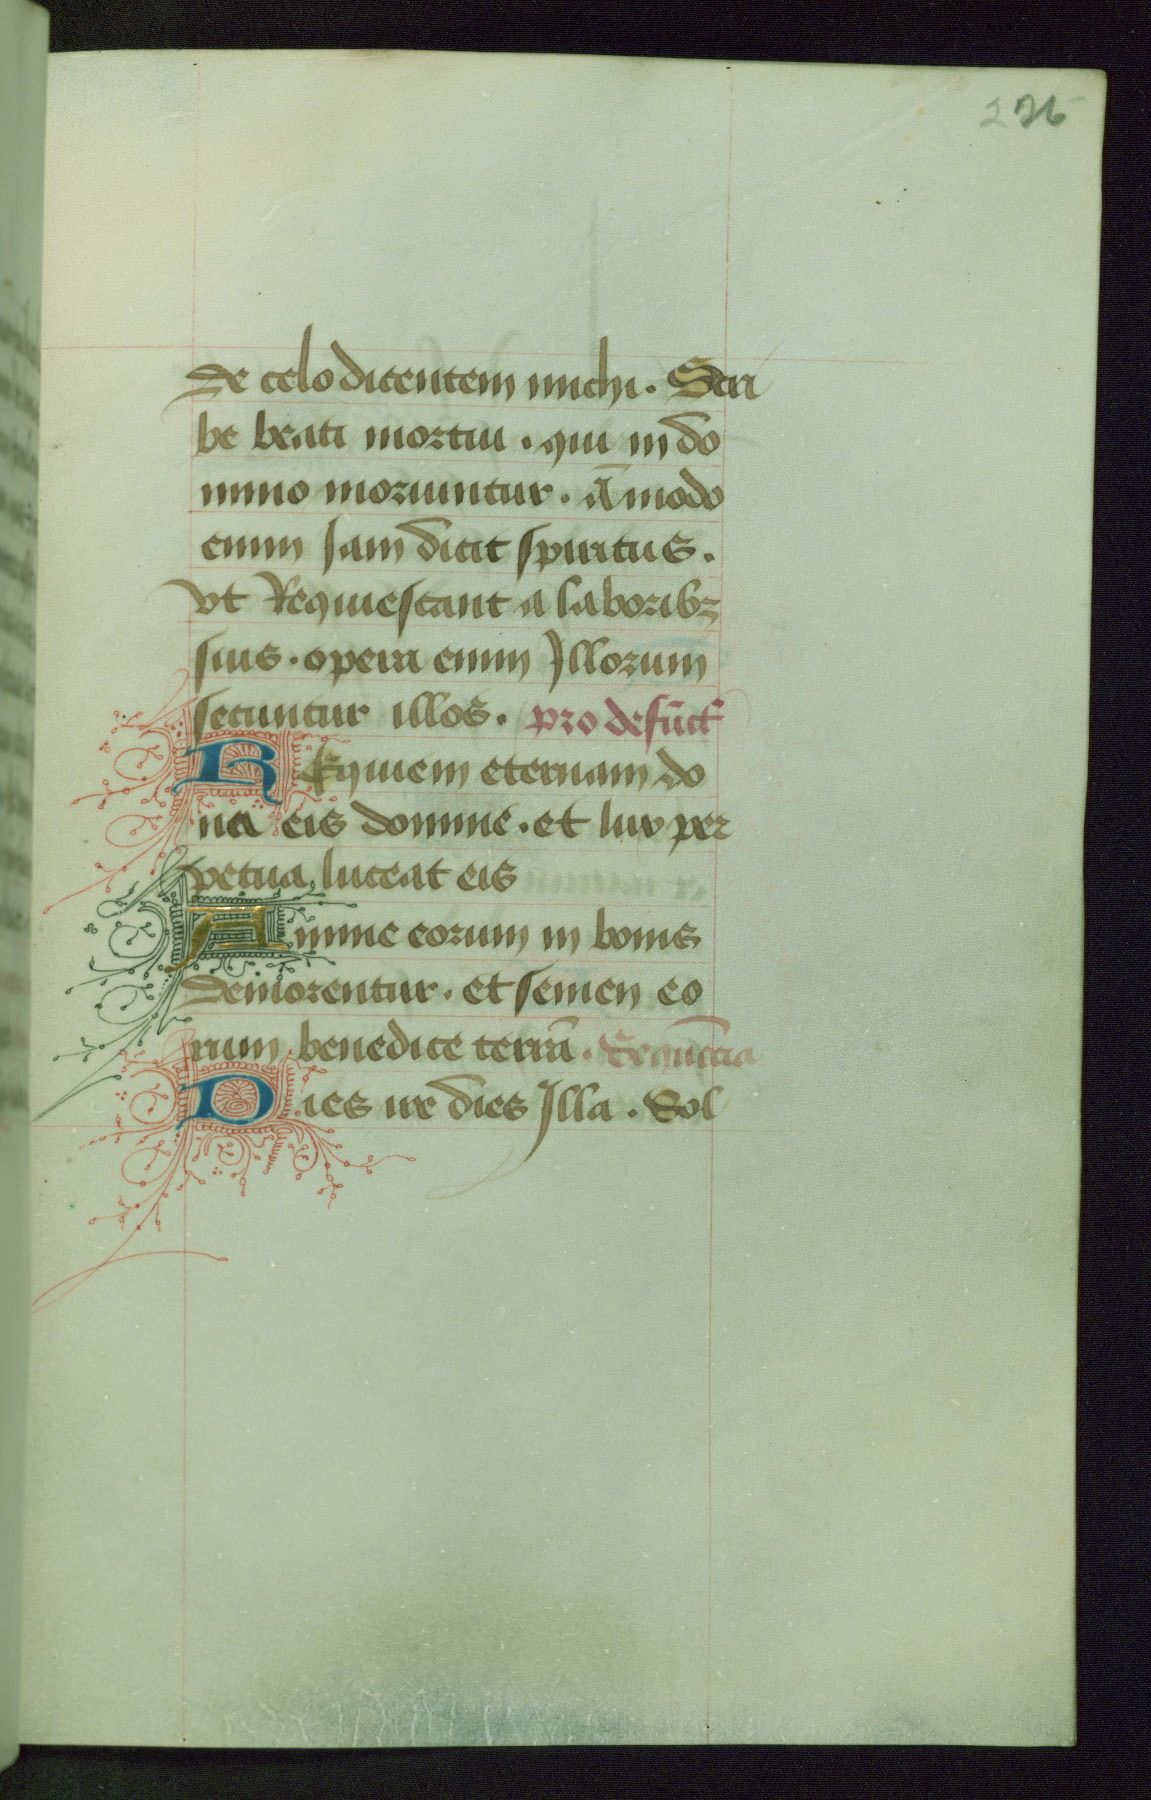 226
de celo dicentem michi. Scri
be beati mortui. qui in do
mino moriuntur. A modo
enim Iam dicit spiritus.
vt Requiescant a laboribꝫ
suis. opera enim Illorum
secuntur illos. pro defūct̄
Requiem eternam do
na eis domine. et lux per
petua luceat eis
Anime eorum in bonis
demorentur. et semen eo
rum benedice terrā. Sequēcia
Dies ire dies Illa. Sol